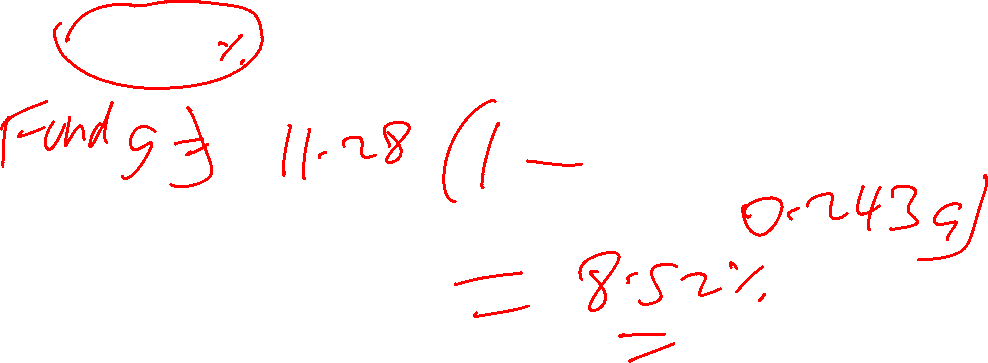 %
Fund 9 ⇒ 11.28 (1 -
0.2439)
= 8.52%